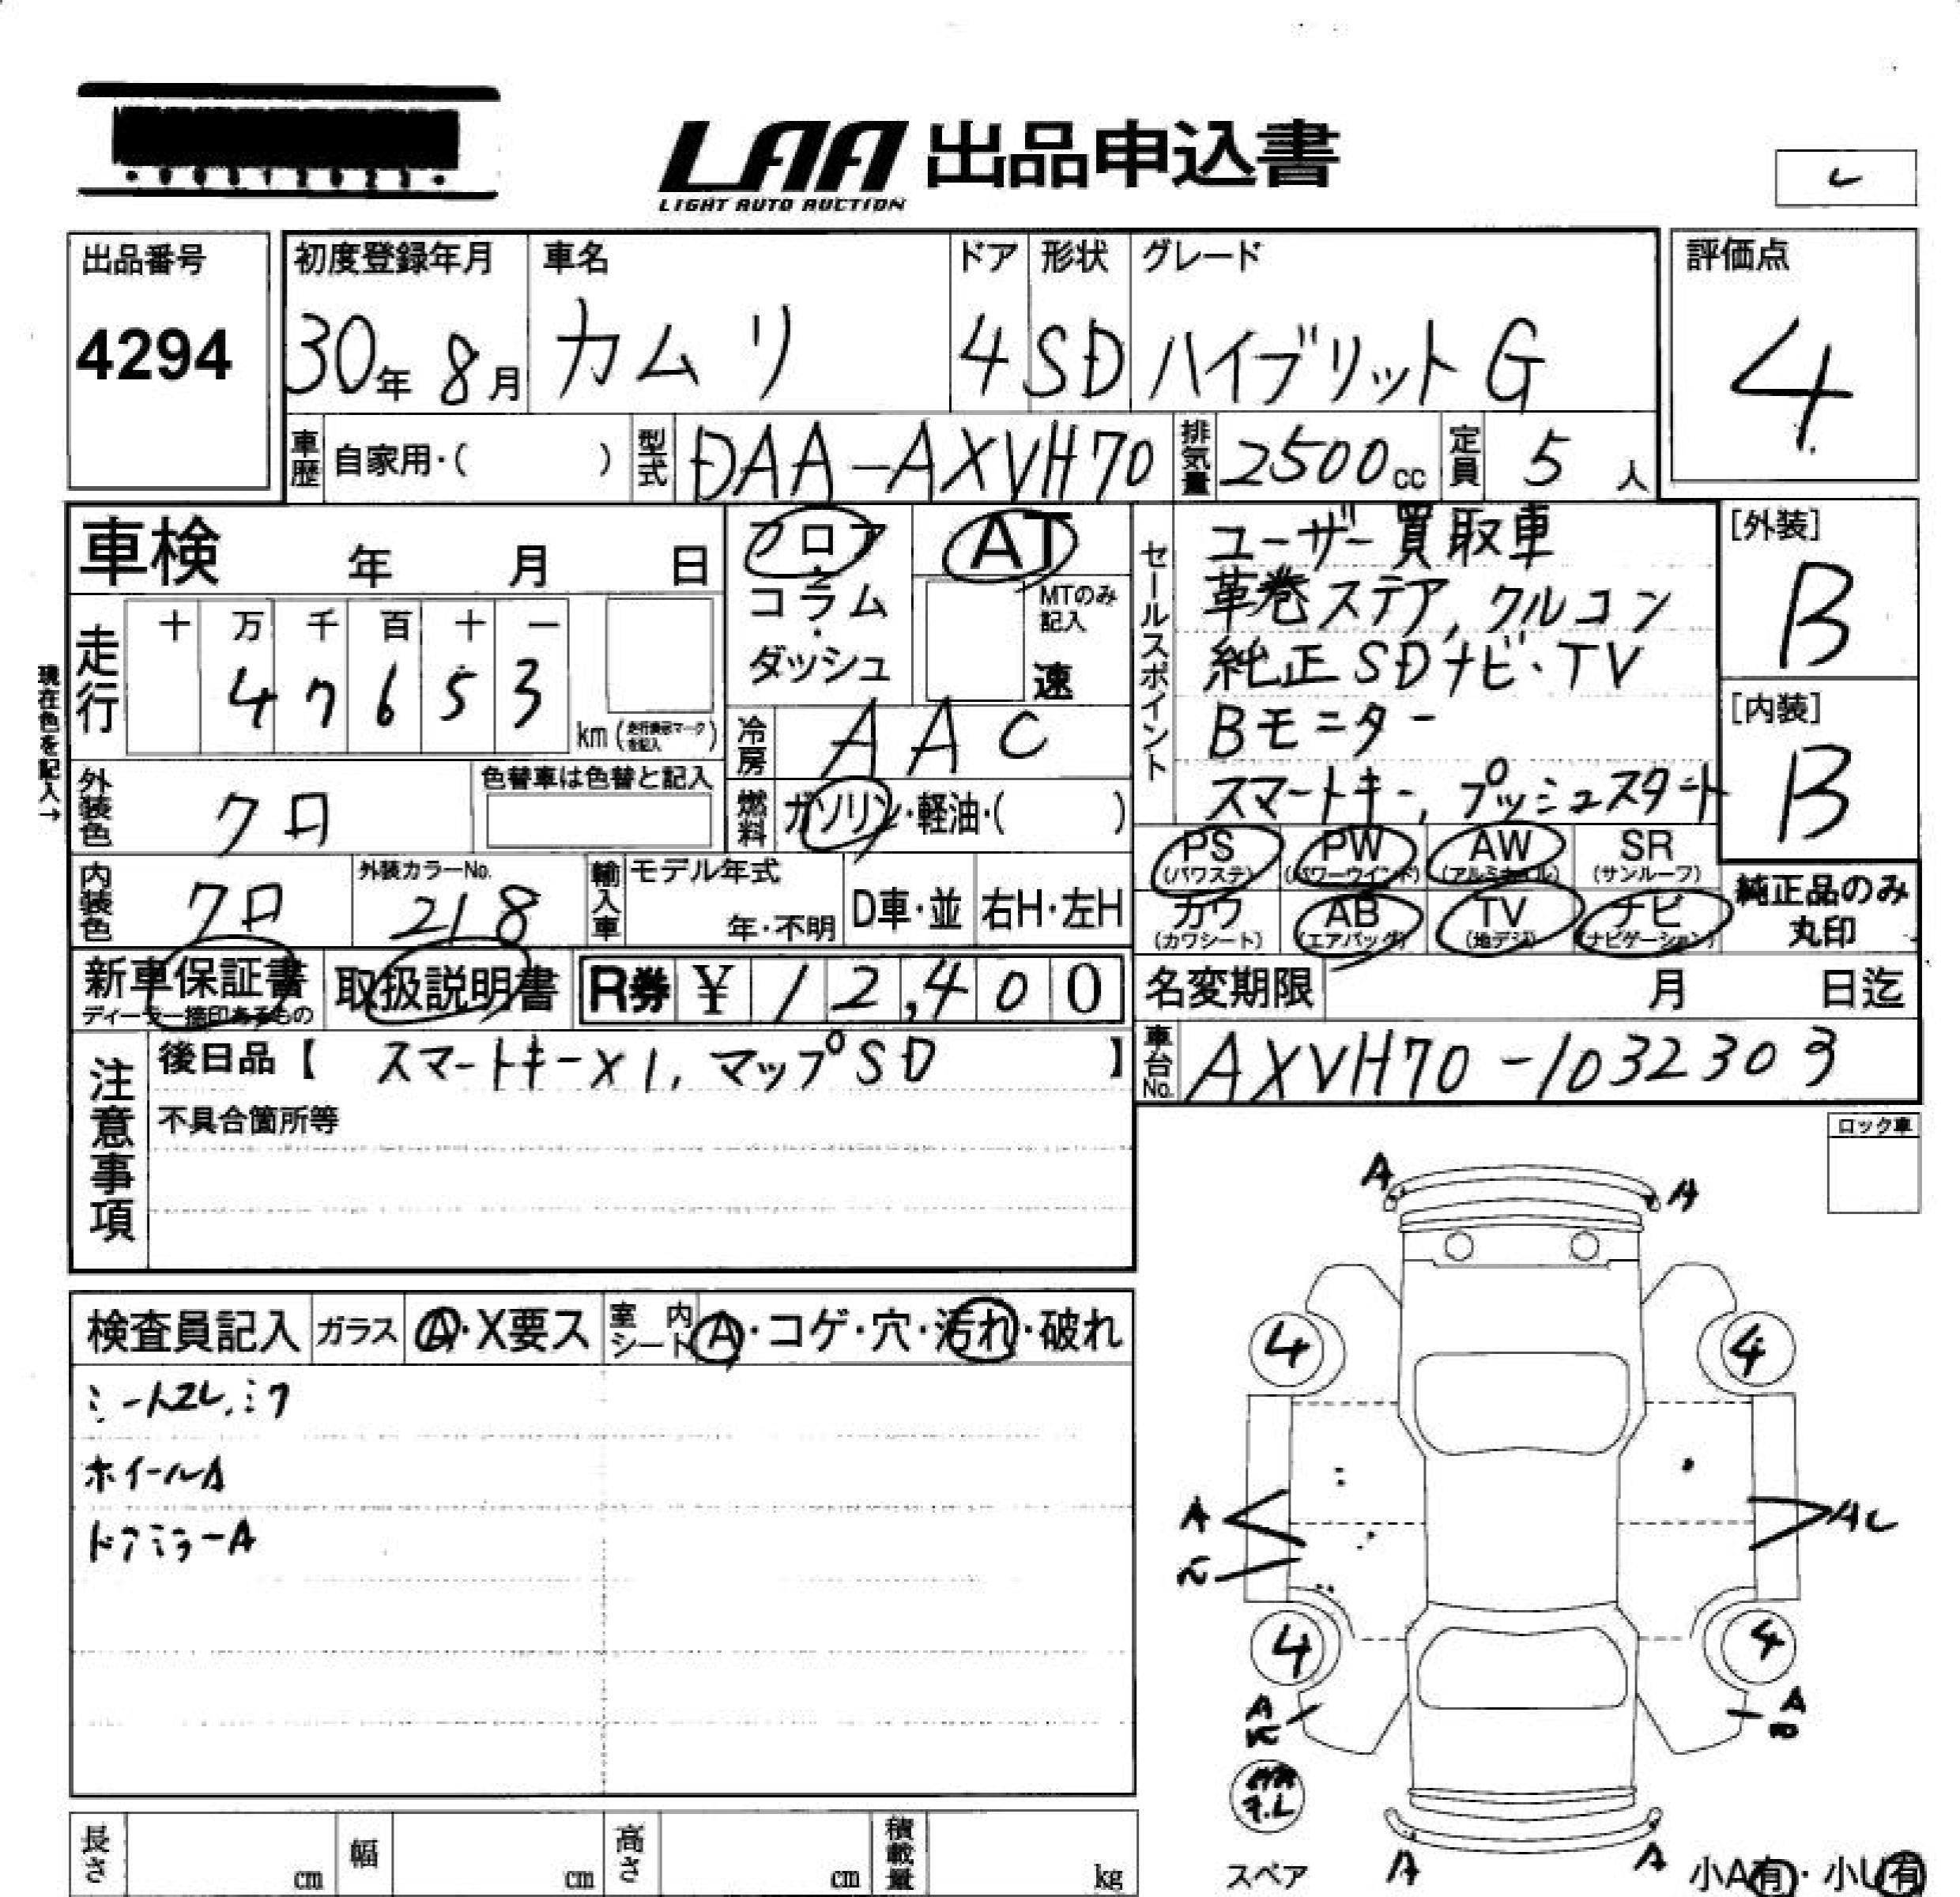 LAA 出品申込書
LIGHT AUTO AUCTION
出品番号
4294
初度登録年月
30年 8月
車名
カムリ
ドア
4
形状
SD
グレード
ハイブリット G
評価点
4
車歴 自家用・( )
型式 DAA-AXVH70
排気量 2500 cc
定員 5 人
車検 年 月 日
フロア
コラム
ダッシュ
AT
MTのみ記入
速
セールスポイント
ユーザー買取車
革巻ステア, クルコン
純正SDナビ・TV
Bモニター
スマートキー, プッシュスタート
[外装]
B
[内装]
B
走行
十 万 千 百 十 一
4 7 6 5 3
km
現在色を記入→
冷房 AAC
外装色 クロ
色替車は色替と記入
燃料 ガソリン・軽油・( )
PS (パワステ)
PW (パワーウインド)
AW (アルミホイル)
SR (サンルーフ)
カワ (カワシート)
AB (エアバッグ)
TV (地デジ)
ナビ (ナビゲーション)
純正品のみ
丸印
内装色 クロ
外装カラーNo.
218
輸入車
モデル年式
年・不明
D車・並
右H・左H
新車保証書
取扱説明書
R券 ¥ 12,400
名変期限 月 日迄
注意事項
後日品【 スマートキー×1, マップSD 】
車台No. AXVH70-1032303
不具合箇所等
ロック車
検査員記入
ガラス A・X要ス
室内シート A・コゲ・穴・汚れ・破れ
シートスレ,シワ
ホイールA
ドアミラーA
A A
4 4
A
A
4 4
A
A
スペア
A A
小A有・小U有
長さ cm
幅 cm
高さ cm
積載量 kg